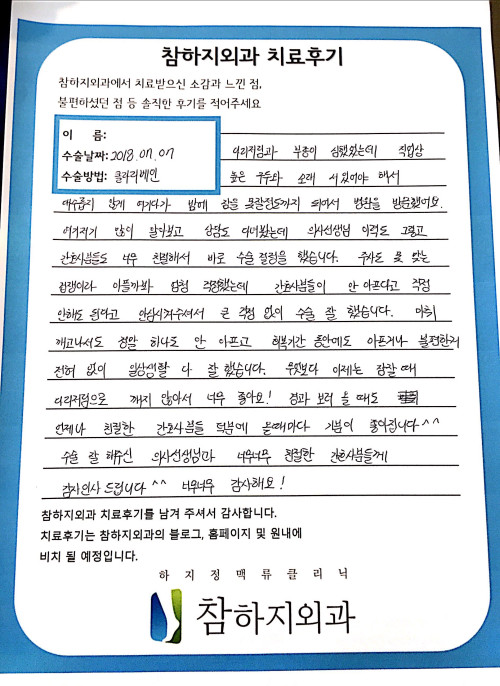 참하지외과 치료후기
참하지외과에서 치료받으신 소감과 느낀 점,
불편하셨던 점 등 솔직한 후기를 적어주세요
이 름:
수술날짜: 2018. 07. 07
수술방법: 클라리베인
다리저림과 부종이 심했었는데 직업상
높은 구두와 오래 서있어야 해서
대수롭지 않게 여기다가 밤에 잠을 못잘정도까지 되어서 병원을 방문했어요.
여기저기 많이 알아보고 상담도 다녀봤는데 의사선생님 이력도 그렇고
간호사분들도 너무 친절해서 바로 수술 결정을 했습니다. 주사도 못 맞는
겁쟁이라 아플까봐 엄청 걱정했는데 간호사분들이 안 아프다고 걱정
안해도 된다고 안심시켜주셔서 큰 걱정 없이 수술 잘 했습니다. 마취
깨고나서도 정말 하나도 안 아프고 회복기간 동안에도 아프거나 불편한거
전혀 없이 일상생활 다 잘 했습니다. 무엇보다 이제는 잠잘 때
다리저림으로 깨지 않아서 너무 좋아요! 경과 보러 올 때도
언제나 친절한 간호사분들 덕분에 올때마다 기분이 좋아집니다^^
수술 잘 해주신 의사선생님과 너무너무 친절한 간호사분들께
감사인사 드립니다^^ 너무너무 감사해요!
참하지외과 치료후기를 남겨 주셔서 감사합니다.
치료후기는 참하지외과의 블로그, 홈페이지 및 원내에
비치 될 예정입니다.
하지정맥류클리닉
참하지외과